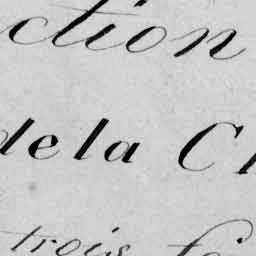 ction
de la C
trois